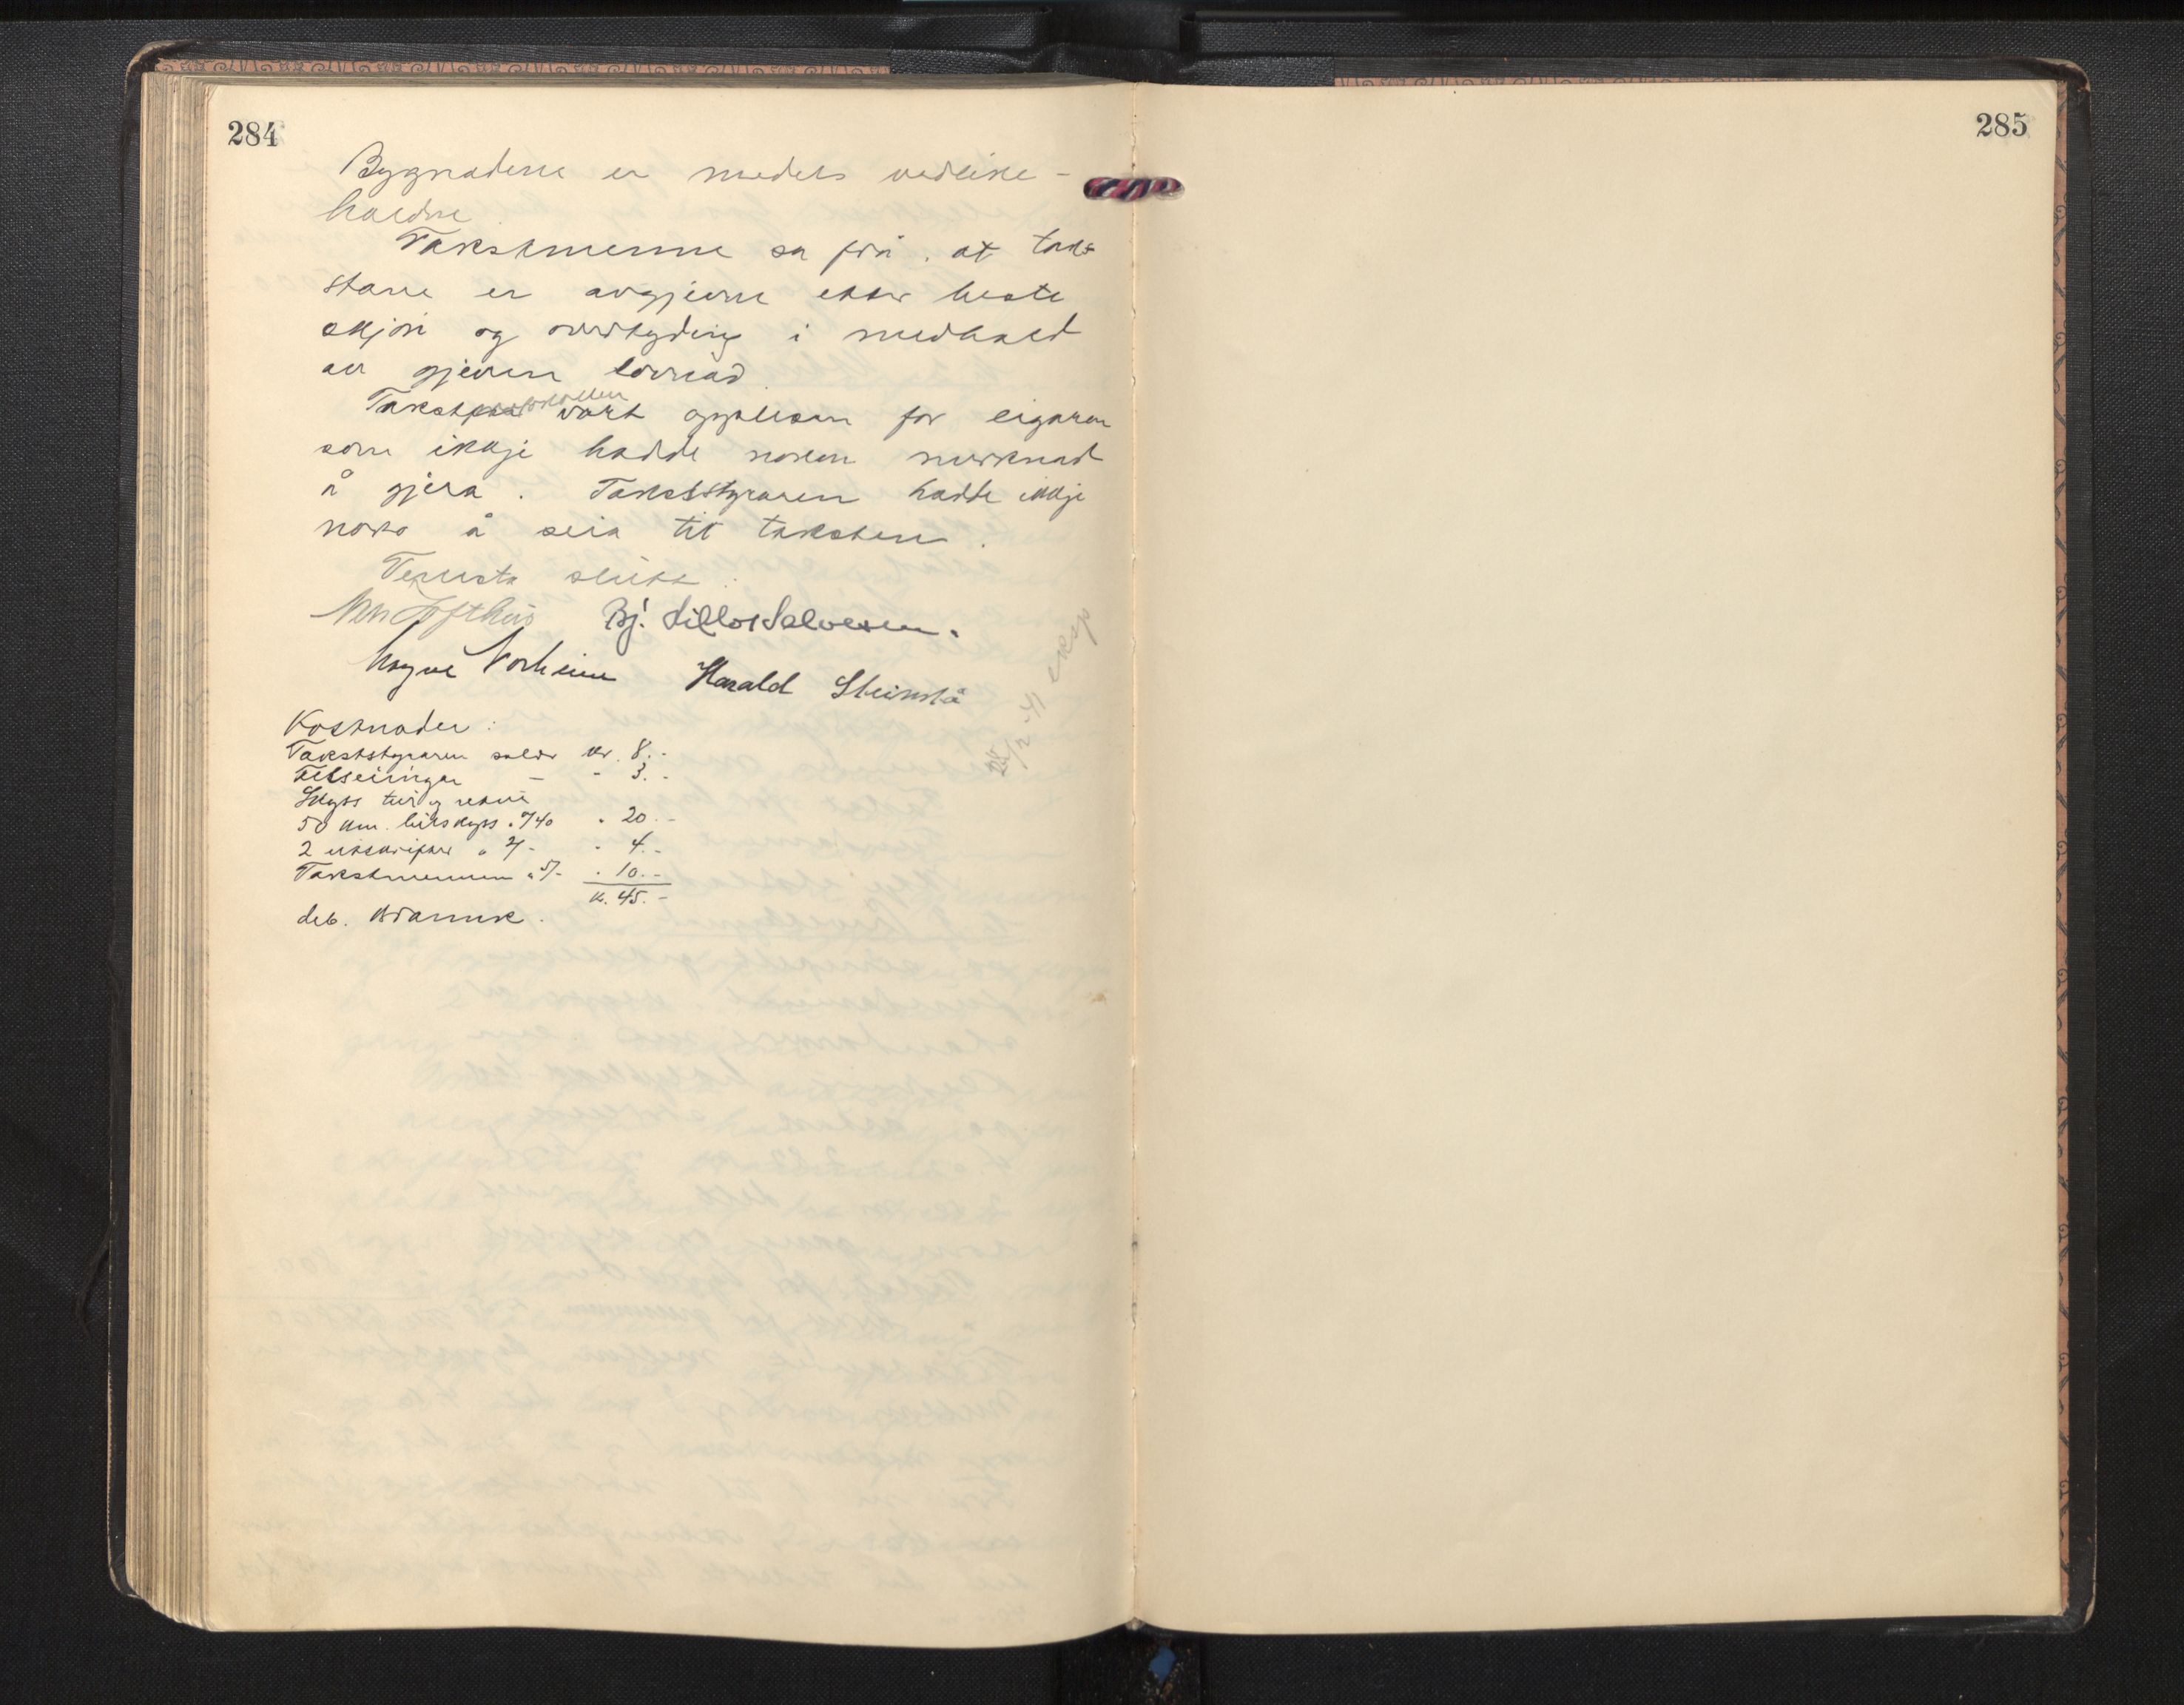 284
Bygnadene er medels vedlike-
haldne
Takstmenne sa frå, at tak-
stane er avgjevne etter beste
skjøn og overtyding i medhald
av gjeven lovnad.
Takstprotokollen vart opplesen for eigaren
som ikkje hadde noken merknad
å gjera. Takststyraren hadde ikkje
noko å seia til taksten.
Tenesta slutt.
Lofthus Bj. Lillo Salvesen.
Norheim Harald Steinstå
24/2 41 eksp
Kostnader:
Takststyraren salær kr. 8.-
Tilseiingar - - 3.-
Skyss tur og retur
50 km. bilskyss à /40 " 20.-
2 utskrifter à 2/- " 4.-
Takstmennen à 5/- " 10.-
k. 45.-
deb.
285